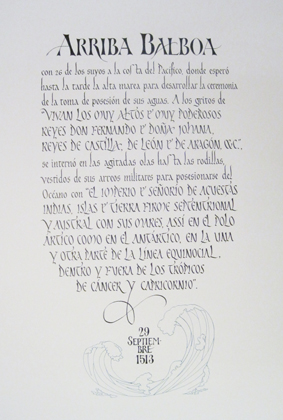 ARRIBA BALBOA
con 26 de los suyos a la costa del Pacífico, donde esperó
hasta la tarde la alta marea para desarrollar la ceremonia
de la toma de posesión de sus aguas. A los gritos de
"VIVAN LOS MUY ALTOS Y MUY PODEROSOS
REYES DON FERNANDO Y DOÑA JOHANA,
REYES DE CASTILLA, DE LEÓN Y DE ARAGÓN, &C.",
se internó en las agitadas olas hasta las rodillas,
vestidos de sus arreos militares para posesionarse del
Océano con "EL IMPERIO Y SEÑORIO DE AQUESTAS
INDIAS, ISLAS Y TIERRA FIRME SEPTENTRIONAL
Y AUSTRAL CON SUS MARES, ASSÍ EN EL POLO
ARTICO COMO EN EL ANTÁRTICO, EN LA UNA
Y OTRA PARTE DE LA LÍNEA EQUINOCIAL,
DENTRO Y FUERA DE LOS TRÓPICOS
DE CÁNCER Y CAPRICORNIO".
29
SEPTIEM-
BRE
1513